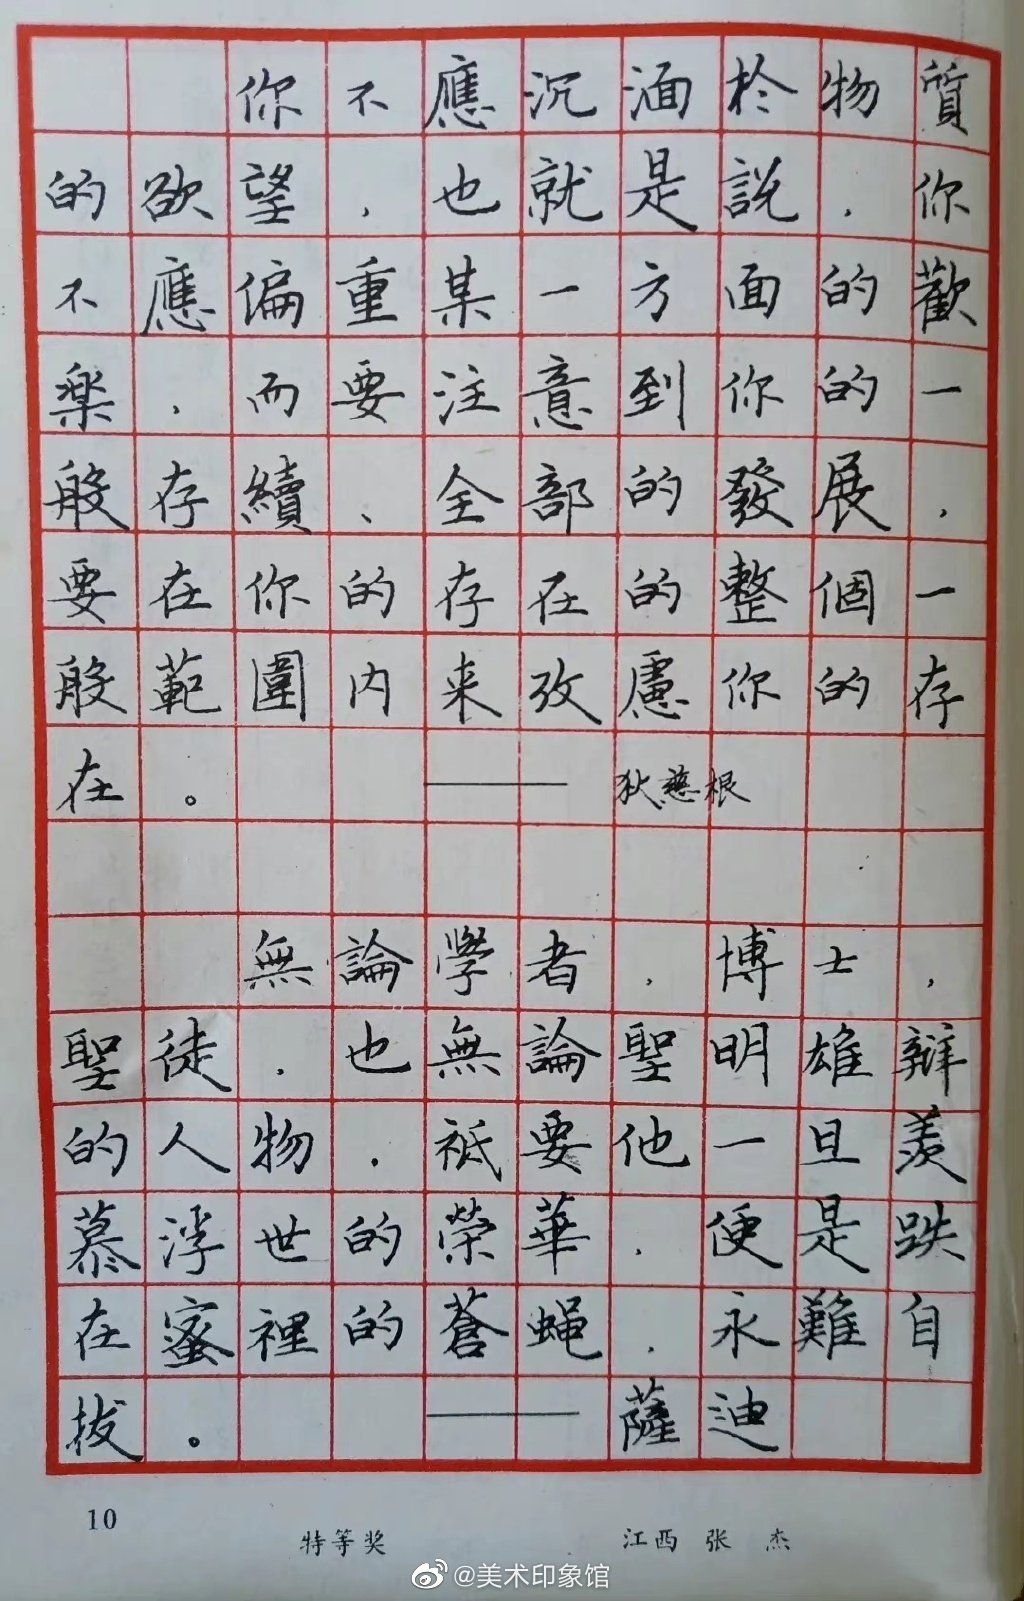 你不應沉湎於物質
的欲望，也就是説，你
不應偏重某一方面的歡
楽，而要注意到你的一
般存續、全部的發展，
要在你的存在的整個一
般範圍内来攷慮你的存
在。——狄慈根
無論學者，博士，
聖徒，也無論聖明雄辯
的人物，祇要他一旦羡
慕浮世的榮華，便是跌
在蜜裡的蒼蝇，永難自
拔。——薩迪
10
特等奖 江西 张杰
@美术印象馆